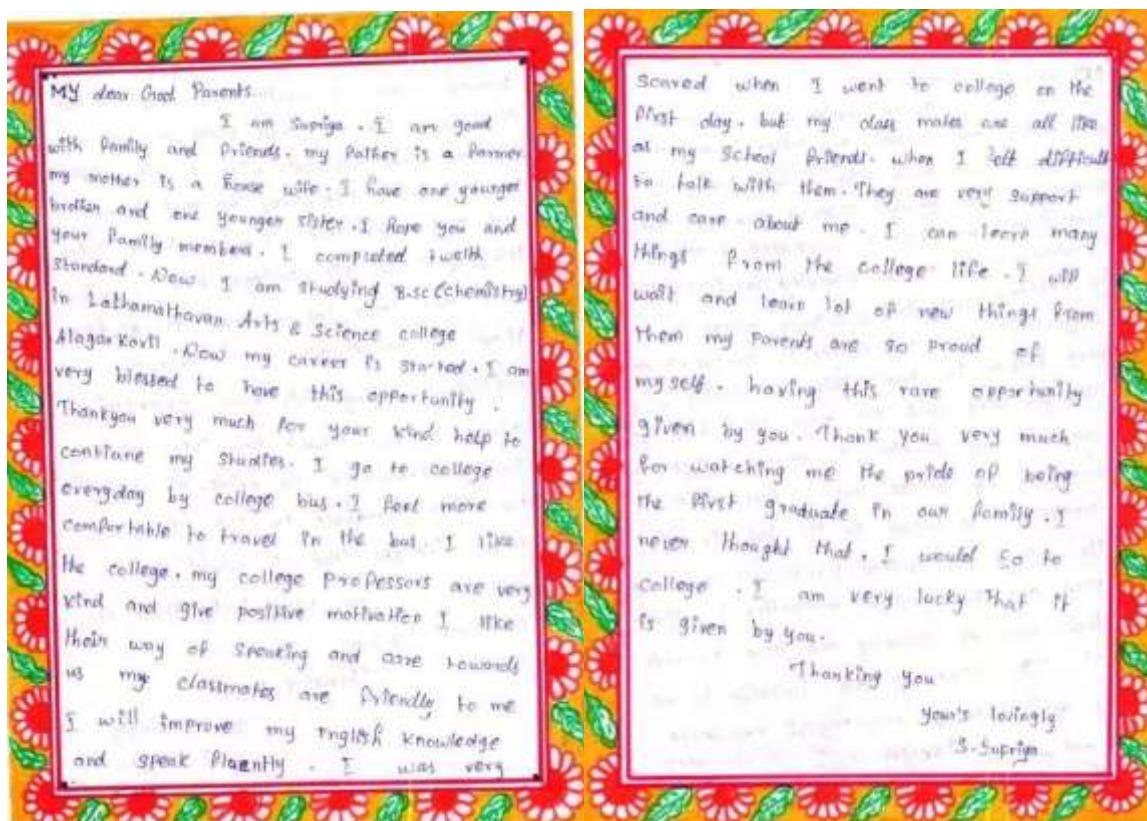 MY dear God Parents...
I am Supriya. I am good
with family and friends. my father is a farmer
my mother is a house wife. I have one younger
brother and one younger sister. I hope you and
your family members. I completed twelth
Standard. Now I am studying B.sc (Chemistry)
in Lathamathavan Arts & Science college
Alagar Kovil. Now my career is started. I am
very blessed to have this opportunity.
Thankyou very much for your kind help to
contiune my studies. I go to college
everyday by college bus. I feel more
comfortable to travel in the bus. I like
the college. my college professors are very
kind and give positive motivation I like
their way of speaking and care towards
us my classmates are friendly to me
I will improve my English knowledge
and speak fluently. I was very
scared when I went to college on the
first day. but my class mates are all like
as my school friends. when I felt difficult
to talk with them. They are very support
and care about me. I can learn many
things from the college life. I will
wait and learn lot of new things from
them my parents are so proud of
my self. having this rare opportunity
given by you. Thank you very much
for watching me the pride of being
the first graduate in our family. I
never thought that. I would go to
college. I am very lucky that it
is given by you.
Thanking you
your's lovingly
S. Supriya